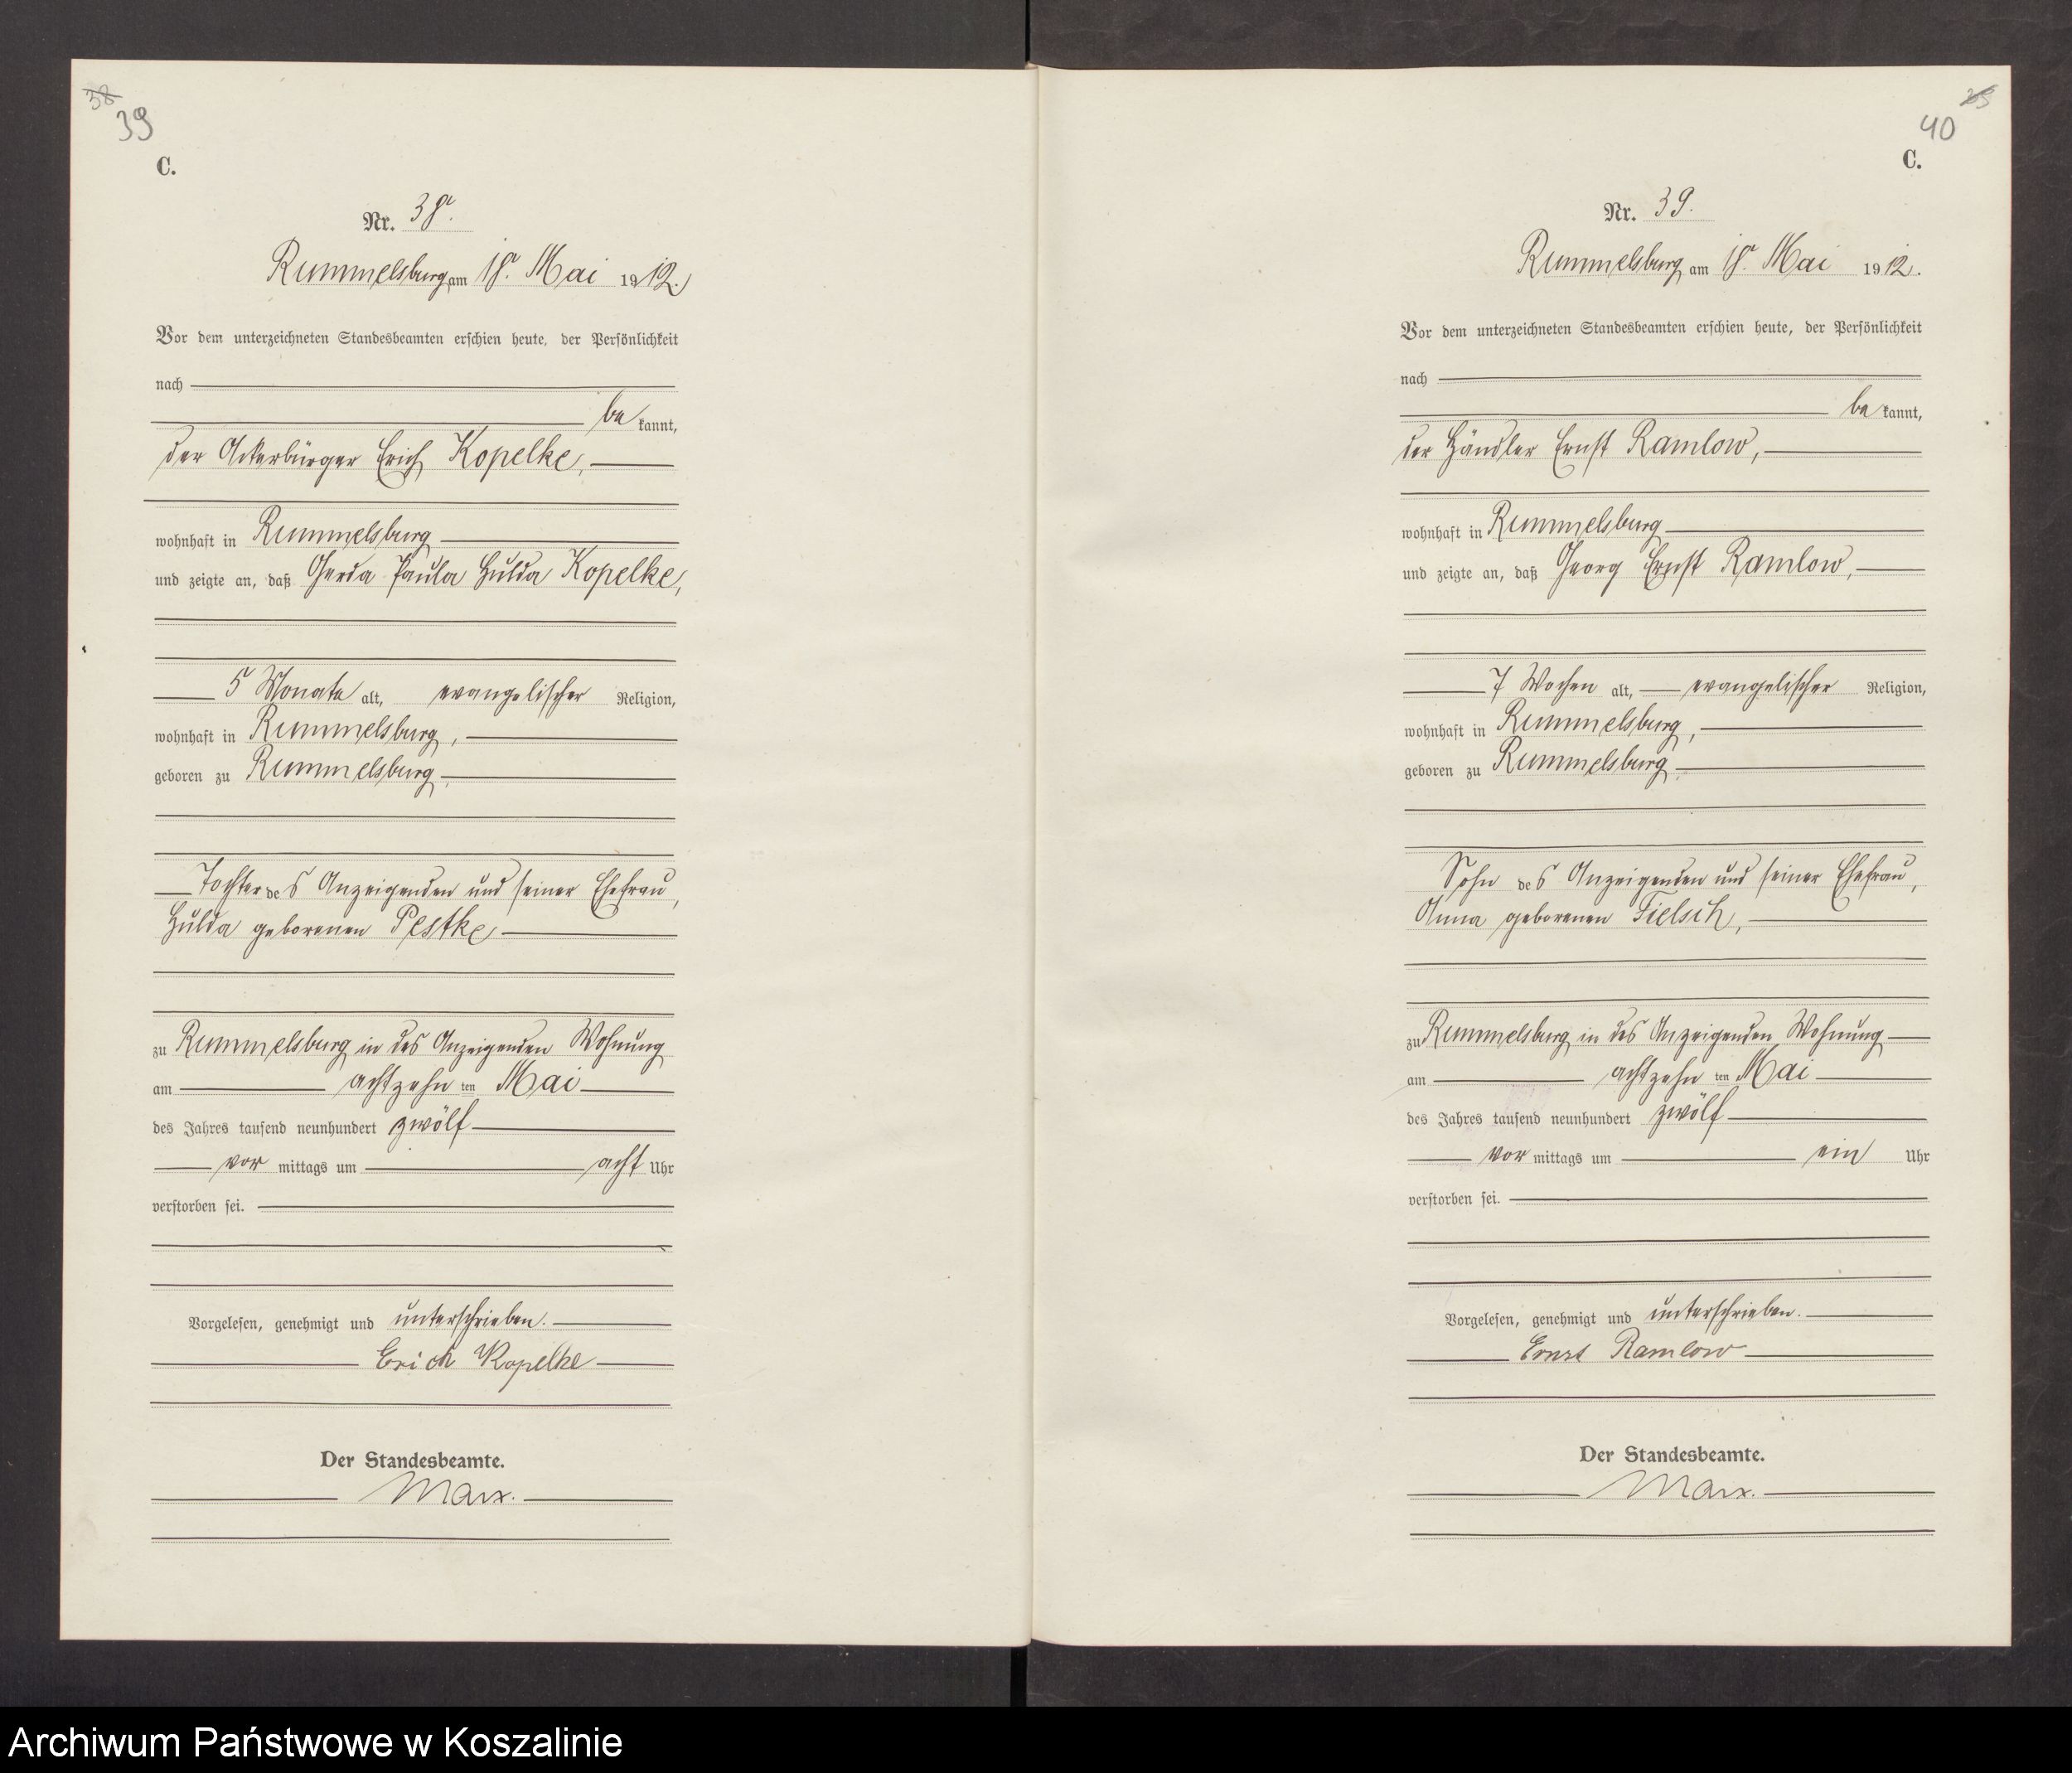 38
39
C.
Nr. 38.
Rummelsburg am 18. Mai 1912.
Vor dem unterzeichneten Standesbeamten erschien heute, der Persönlichkeit
nach
be kannt,
der Ackerbürger Erich Kopelke,
wohnhaft in Rummelsburg
und zeigte an, daß Gerda Paula Hulda Kopelke,
5 Monate alt, evangelischer Religion,
wohnhaft in Rummelsburg,
geboren zu Rummelsburg,
Tochter des Anzeigenden und seiner Ehefrau,
Hulda geborenen Pestke
zu Rummelsburg in des Anzeigenden Wohnung
am achtzehn ten Mai
des Jahres tausend neunhundert zwölf
vor mittags um acht Uhr
verstorben sei.
Vorgelesen, genehmigt und unterschrieben.
Erich Kopelke
Der Standesbeamte.
Marx.
39
40
C.
Nr. 39.
Rummelsburg am 18. Mai 1912.
Vor dem unterzeichneten Standesbeamten erschien heute, der Persönlichkeit
nach
be kannt,
der Händler Ernst Ramlow,
wohnhaft in Rummelsburg
und zeigte an, daß Georg Ernst Ramlow,
7 Wochen alt, evangelischer Religion,
wohnhaft in Rummelsburg,
geboren zu Rummelsburg,
Sohn des Anzeigenden und seiner Ehefrau,
Anna geborenen Fielsch,
zu Rummelsburg in des Anzeigenden Wohnung
am achtzehn ten Mai
des Jahres tausend neunhundert zwölf
vor mittags um ein Uhr
verstorben sei.
Vorgelesen, genehmigt und unterschrieben.
Ernst Ramlow
Der Standesbeamte.
Marx.
Archiwum Państwowe w Koszalinie